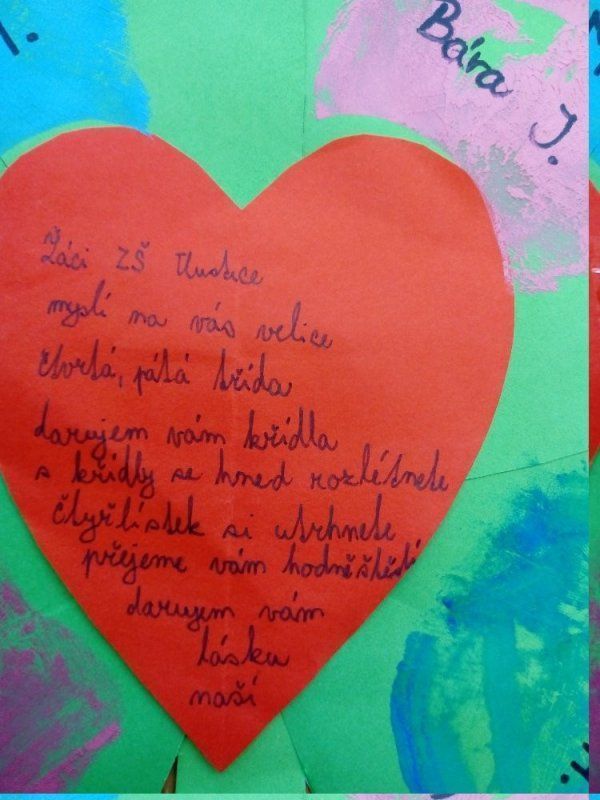 Bára J.
Žáci ZŠ Tlustice
myslí na vás velice
čtvrtá, pátá třída
darujem vám křídla
s křídly se hned rozlétnete
čtyřlístek si utrhnete
přejeme vám hodněštěstí
darujem vám
lásku
naší